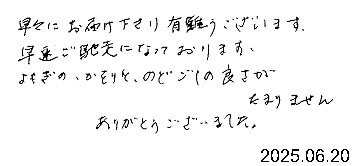 早々にお届け下さり有難うございます。
早速ご馳走になっております、
よもぎの、かそりと、のどごしの良さが
たまりません
ありがとうございました。
2025.06.20